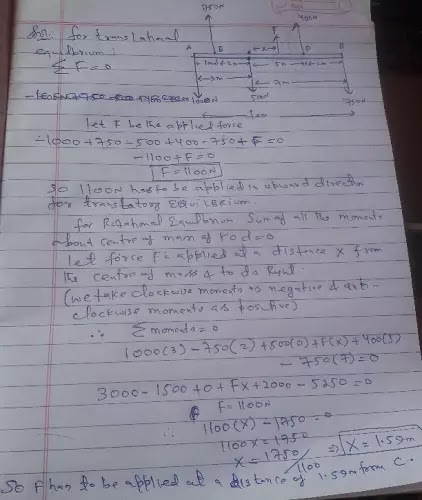 750N
F
400N
Sol. for translational
equilibrium:
ΣF=0
A B C D B
x
2m
3m
5m
7m
1000N
500N
750N
let F be the applied force
-1000+750-500+400-750+F=0
-1100+F=0
F=1100N
So 1100N has to be applied in upward direction
for translatory Equilibrium.
for Rotational Equilibrium Sum of all the moments
about centre of mass of rod=0
let force F is applied at a distance x from
the centre of mass
(we take clockwise moments as negative & anti-
clockwise moments as positive)
∴ Σmoments=0
1000(3)-750(2)+500(0)+F(x)+400(5)
-750(7)=0
3000-1500+0+Fx+2000-5250=0
F=1100N
∴ 1100(x)-1750=0
1100x=1750
x=1750/1100 ⇒ x=1.59m
So F has to be applied at a distance of 1.59m form C.